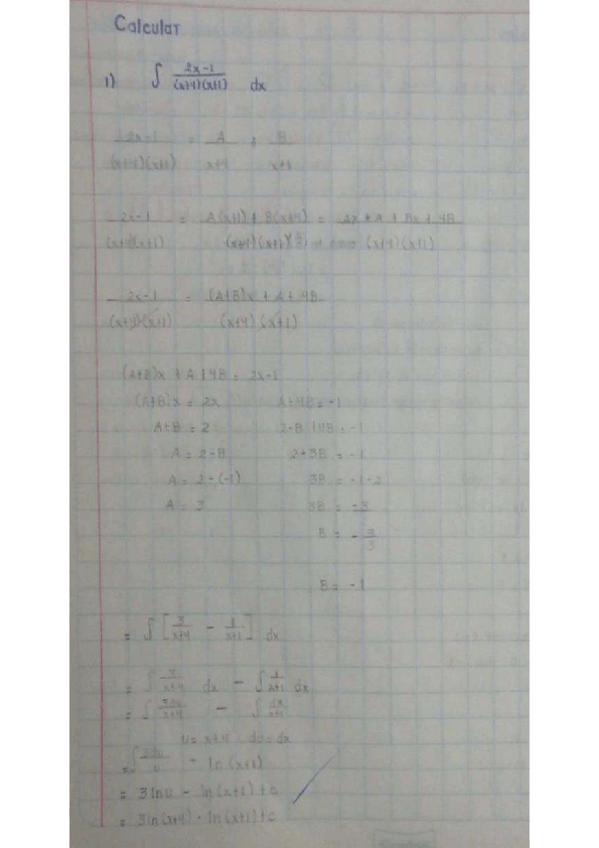 Calcular
1) ∫ 2x-1/(x+4)(x+1) dx
2x-1/(x+4)(x+1) = A/x+4 + B/x+1
2x-1/(x+4)(x+1) = A(x+1) + B(x+4)/(x+4)(x+1) = Ax + A + Bx + 4B/(x+4)(x+1)
2x-1/(x+4)(x+1) = (A+B)x + A + 4B/(x+4)(x+1)
(A+B)x + A + 4B = 2x-1
(A+B)x = 2x A+4B = -1
A+B = 2 2-B+4B = -1
A = 2-B 2+3B = -1
A = 2-(-1) 3B = -1-2
A = 3 3B = -3
B = -3/3
B = -1
= ∫ [3/x+4 - 1/x+1] dx
= ∫ 3/x+4 dx - ∫ 1/x+1 dx
= ∫ 3dx/x+4 - ∫ dx/x+1
u = x+4 du = dx
= ∫ 3du/u - ln(x+1)
= 3lnu - ln(x+1)+c
= 3ln(x+4) - ln(x+1)+c